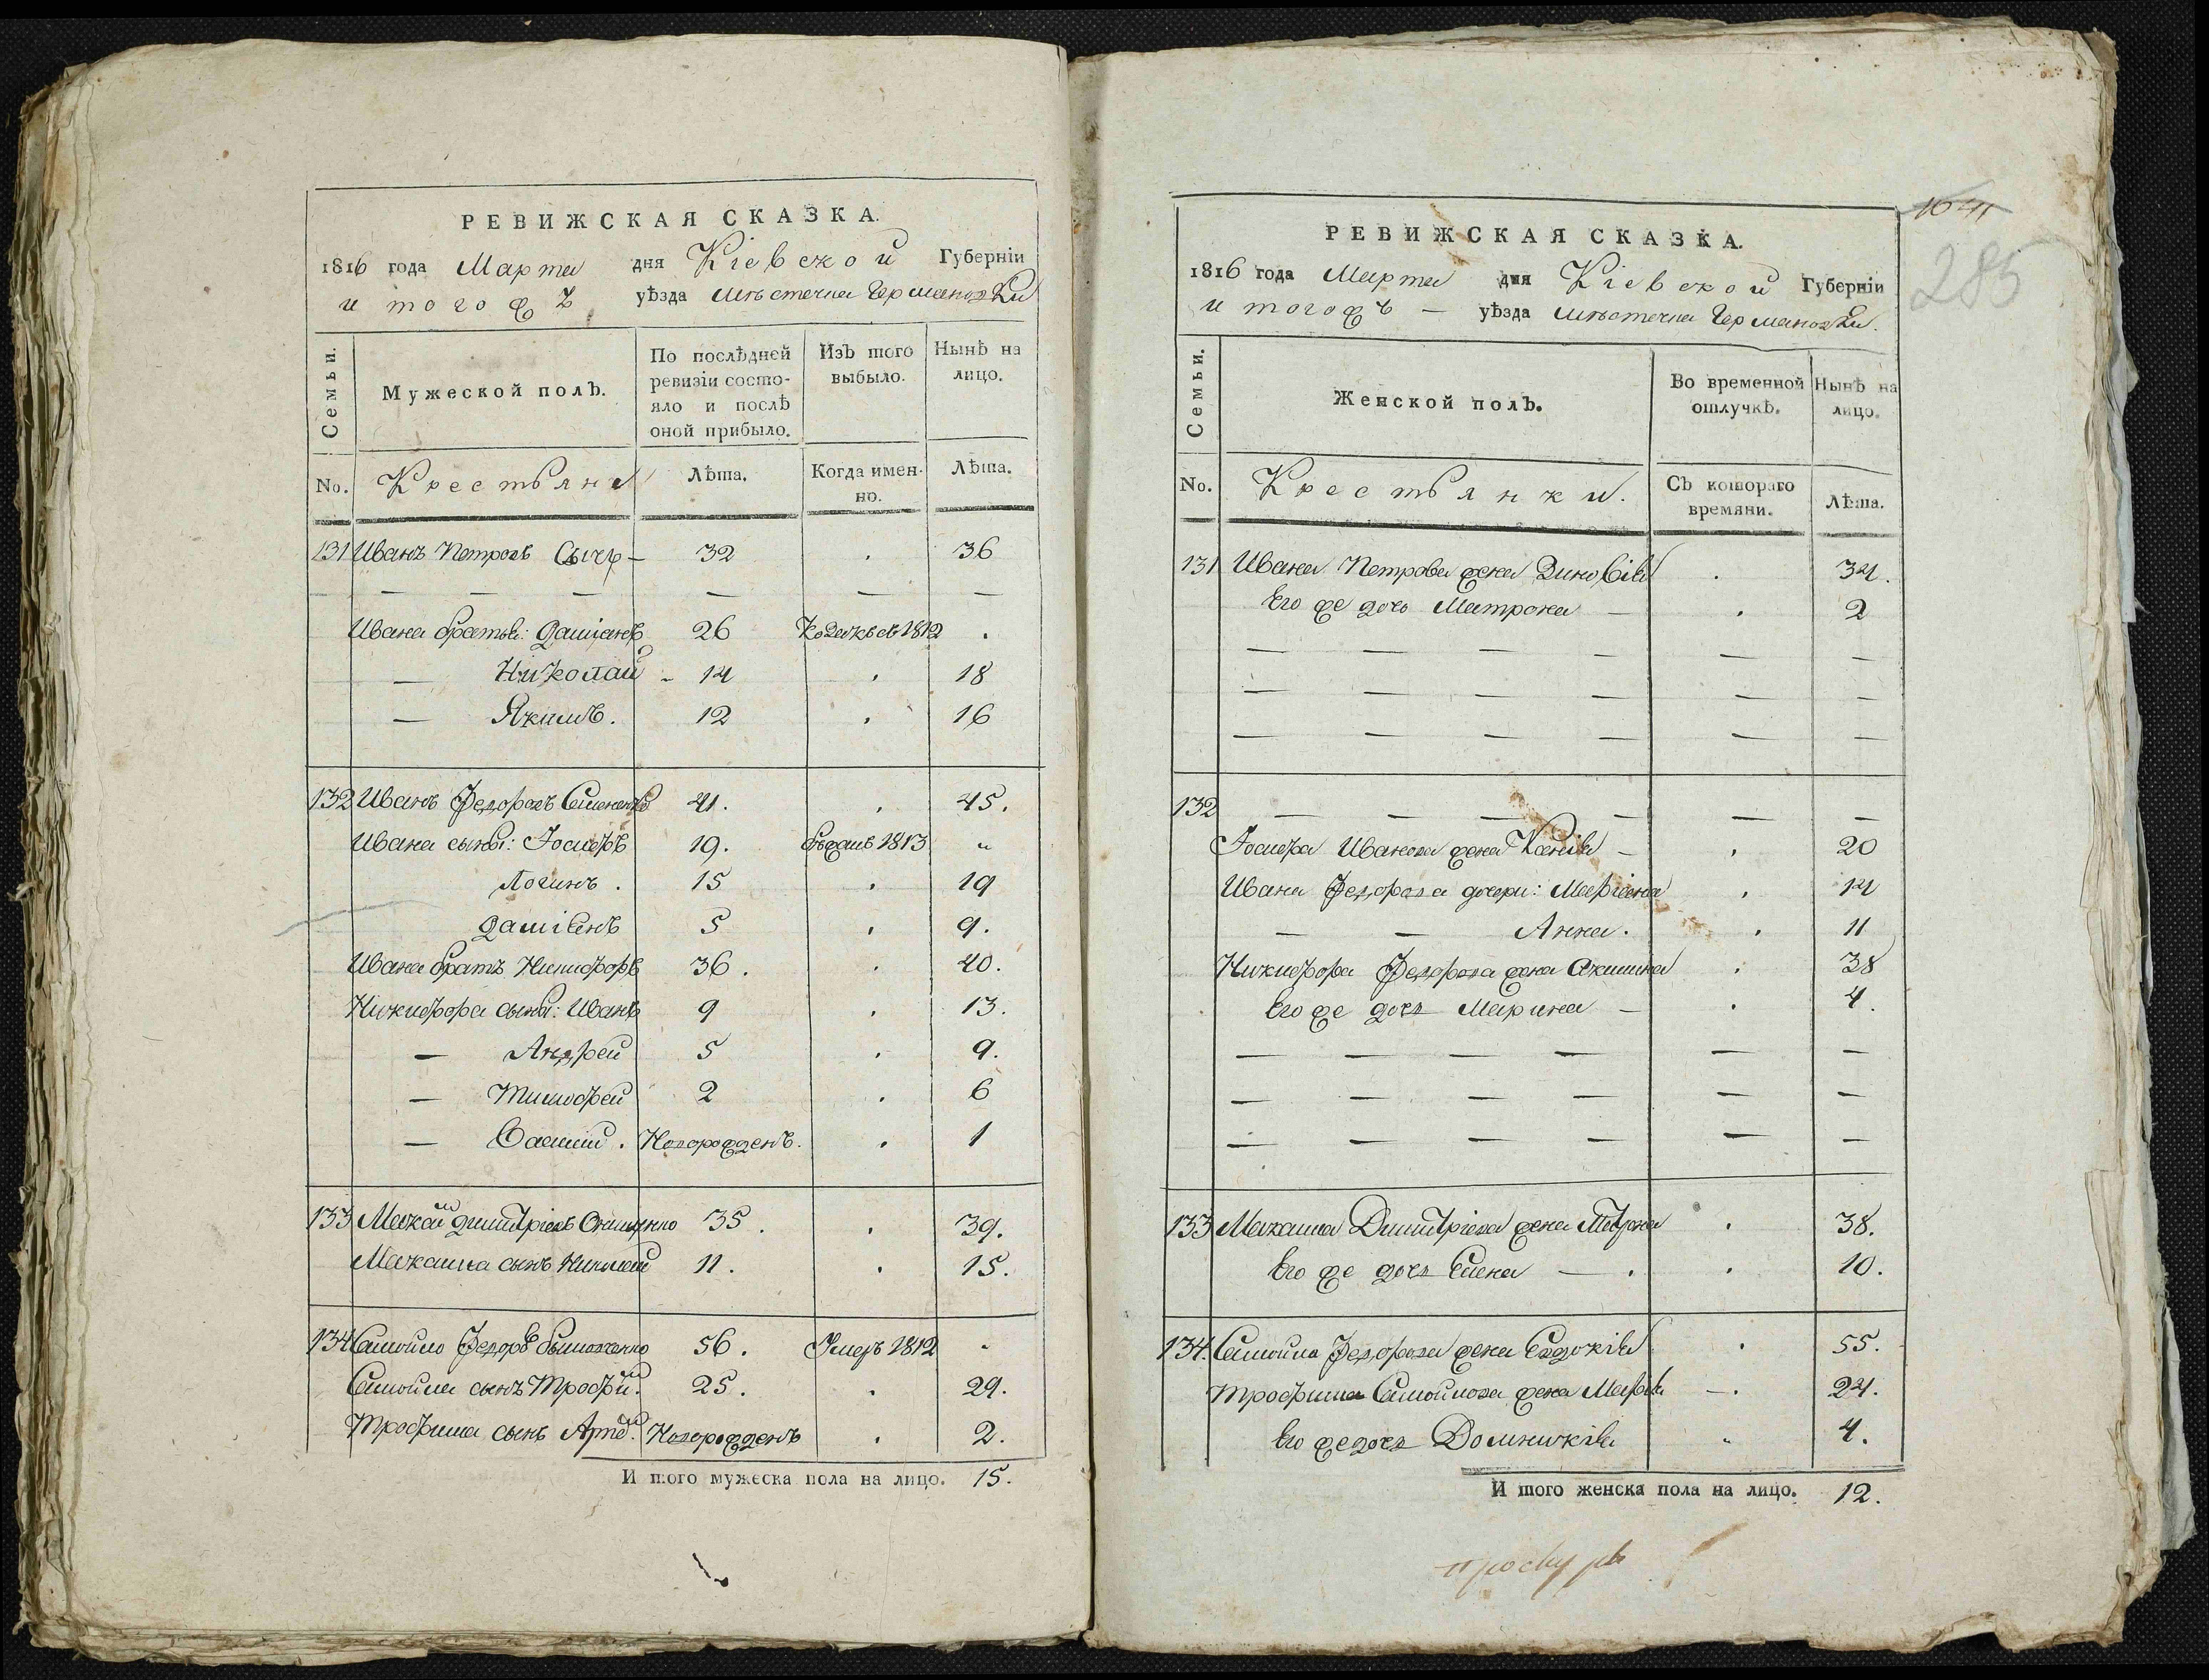 РЕВИЖСКАЯ СКАЗКА.
1816 года Марта дня Кіевской Губерніи
и тогожъ уѣзда мѣстечка Германовки
Семьи. Мужеской полъ. По послѣдней ревизіи состояло и послѣ оной прибыло. Изъ того выбыло. Нынѣ на лицо.
No. Крестьяне Лѣта. Когда именно. Лѣта.
131 Иванъ Петровъ Сычъ — 32 . 36
— — — — — —
Ивана братья: Даміанъ 26 1812 .
— Николай - 14 . 18
— Якимъ. 12 . 16
132 Иванъ Федоровъ Семененко 41. . 45.
Ивана сыны: Іосифъ 19. бѣжалъ 1813 "
Логинъ. 15 . 19
Даміанъ 5 . 9.
Ивана братъ Никифоръ 36. . 40.
Никифора сыны: Иванъ 9 . 13.
— Андрей 5 . 9.
— Тимофей 2 . 6
— Василій. Новорожденъ. . 1
133 Макаим Димитріевъ 35. . 39.
Макаима сынъ Николай 11. . 15.
134 Самойло Федоровъ 56. Умеръ 1812 .
Самойла сынъ Трофим. 25. . 29.
Трофима сынъ Новорожденъ . 2.
И того мужеска пола на лицо. 15.
1641
285
РЕВИЖСКАЯ СКАЗКА.
1816 года Марта дня Кіевской Губерніи
и тогожъ — уѣзда мѣстечка Германовки.
Семьи. Женской полъ. Во временной отлучкѣ. Нынѣ на лицо.
No. Крестьянки. Съ котораго времяни. Лѣта.
131 Ивана Петрова жена Зиновія . 34.
Его же дочь Матрона — . 2
— — — — — —
— — — — — —
— — — — — —
132 — — — — — —
Іосифа Иванова жена Ксенія — . 20
Ивана Федорова дочери: Маріана . 14
— — Анна. . 11
Никифора Федорова жена Акилина . 38
Его же дочь Марина — . 4.
— — — — — —
— — — — — —
— — — — — —
133 Макаима Димитріева жена Матрона . 38.
Его же дочь Елена — . . 10.
134. Самойла Федорова жена Евдокія . 55.
Трофима Самойлова жена Марія — . 24.
Его же дочь Домникія " 4.
И того женска пола на лицо. 12.